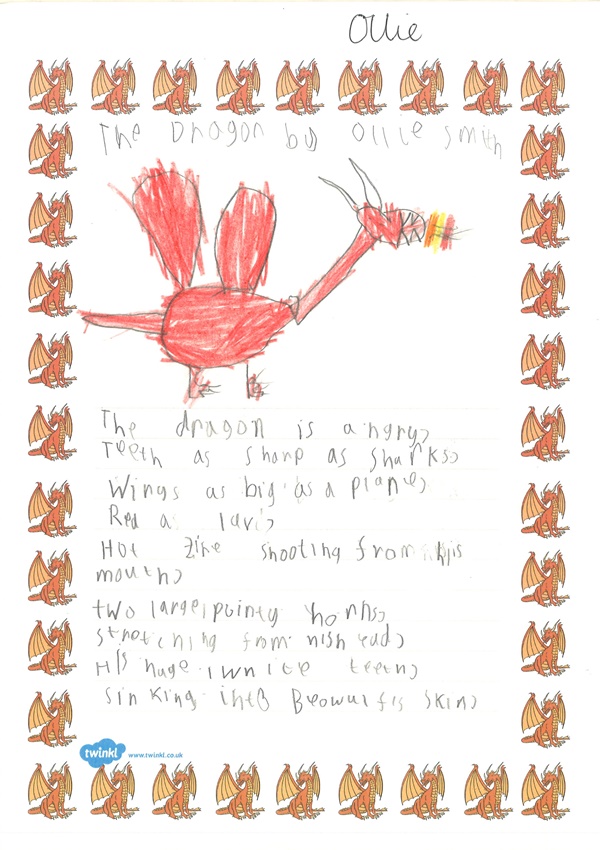 Ollie
The Dragon by Ollie Smith
The dragon is angry,
Teeth as sharp as sharks,
Wings as big as a plane,
Red as lava,
Hot fire shooting from his
mouth,
two large pointy horns,
stretching from his head,
His huge white teeth,
Sinking into Beowulfis skin,
twinkl www.twinkl.co.uk